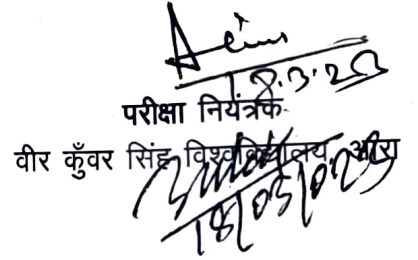 18.3.23
परीक्षा नियंत्रक
वीर कुँवर सिंह विश्वविद्यालय, आरा
18/03/023